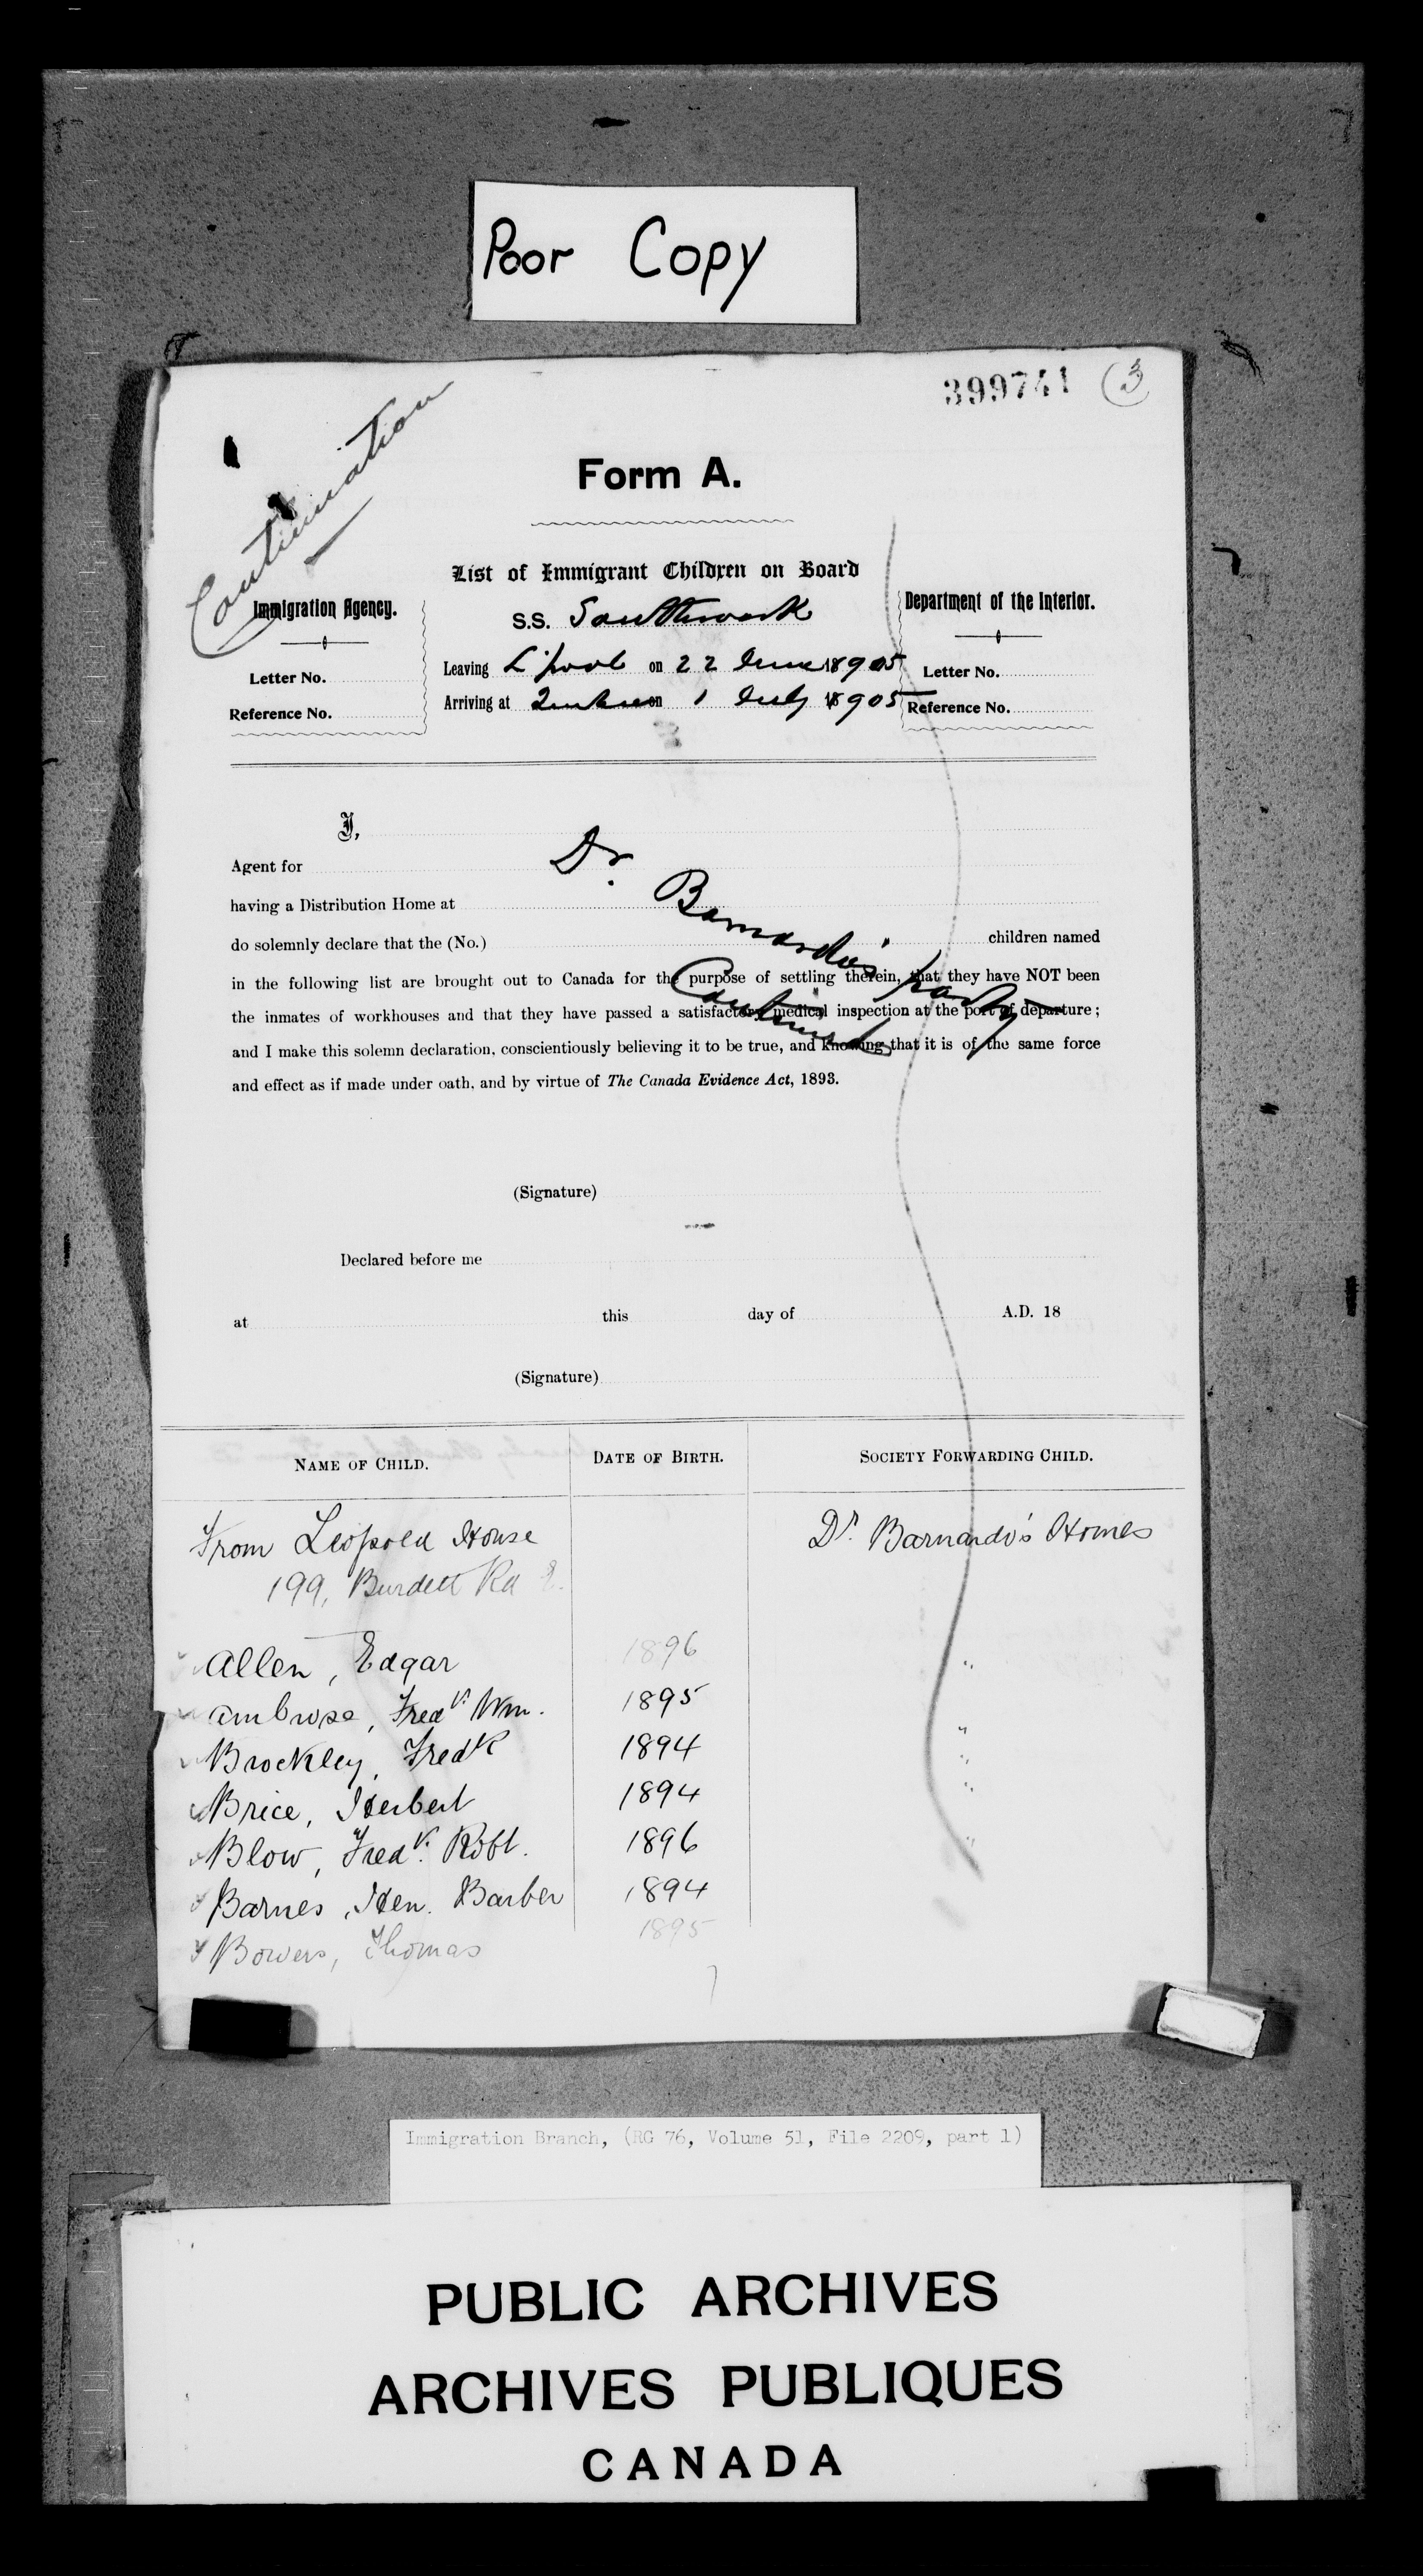 Poor Copy
399741 (3)
Continuation
Form A.
List of Immigrant Children on Board
Immigration Agency.
S.S. Southwark
Department of the Interior.
Letter No.
Leaving L'pool on 22 June 18905
Letter No.
Reference No.
Arriving at Quebec on 1 July 18905
Reference No.
I,
Agent for Dr.
having a Distribution Home at Barnardo's party
do solemnly declare that the (No.) children named
in the following list are brought out to Canada for the purpose of settling therein, that they have NOT been
Continued
the inmates of workhouses and that they have passed a satisfactory medical inspection at the port of departure;
and I make this solemn declaration, conscientiously believing it to be true, and knowing that it is of the same force
and effect as if made under oath, and by virtue of The Canada Evidence Act, 1893.
(Signature)
Declared before me
at this day of A.D. 18
(Signature)
NAME OF CHILD. DATE OF BIRTH. SOCIETY FORWARDING CHILD.
From Leopold House Dr. Barnardo's Homes
199, Burdett Rd E.
Allen, Edgar 1896 "
Ambrose, Fredk. Wm. 1895 "
Brockley, Fredk 1894 "
Brice, Herbert 1894 "
Blow, Fredk. Robt. 1896 "
Barnes, Hen. Barber 1894
Bowers, Thomas 1895
7
Immigration Branch, (RG 76, Volume 51, File 2209, part 1)
PUBLIC ARCHIVES
ARCHIVES PUBLIQUES
CANADA